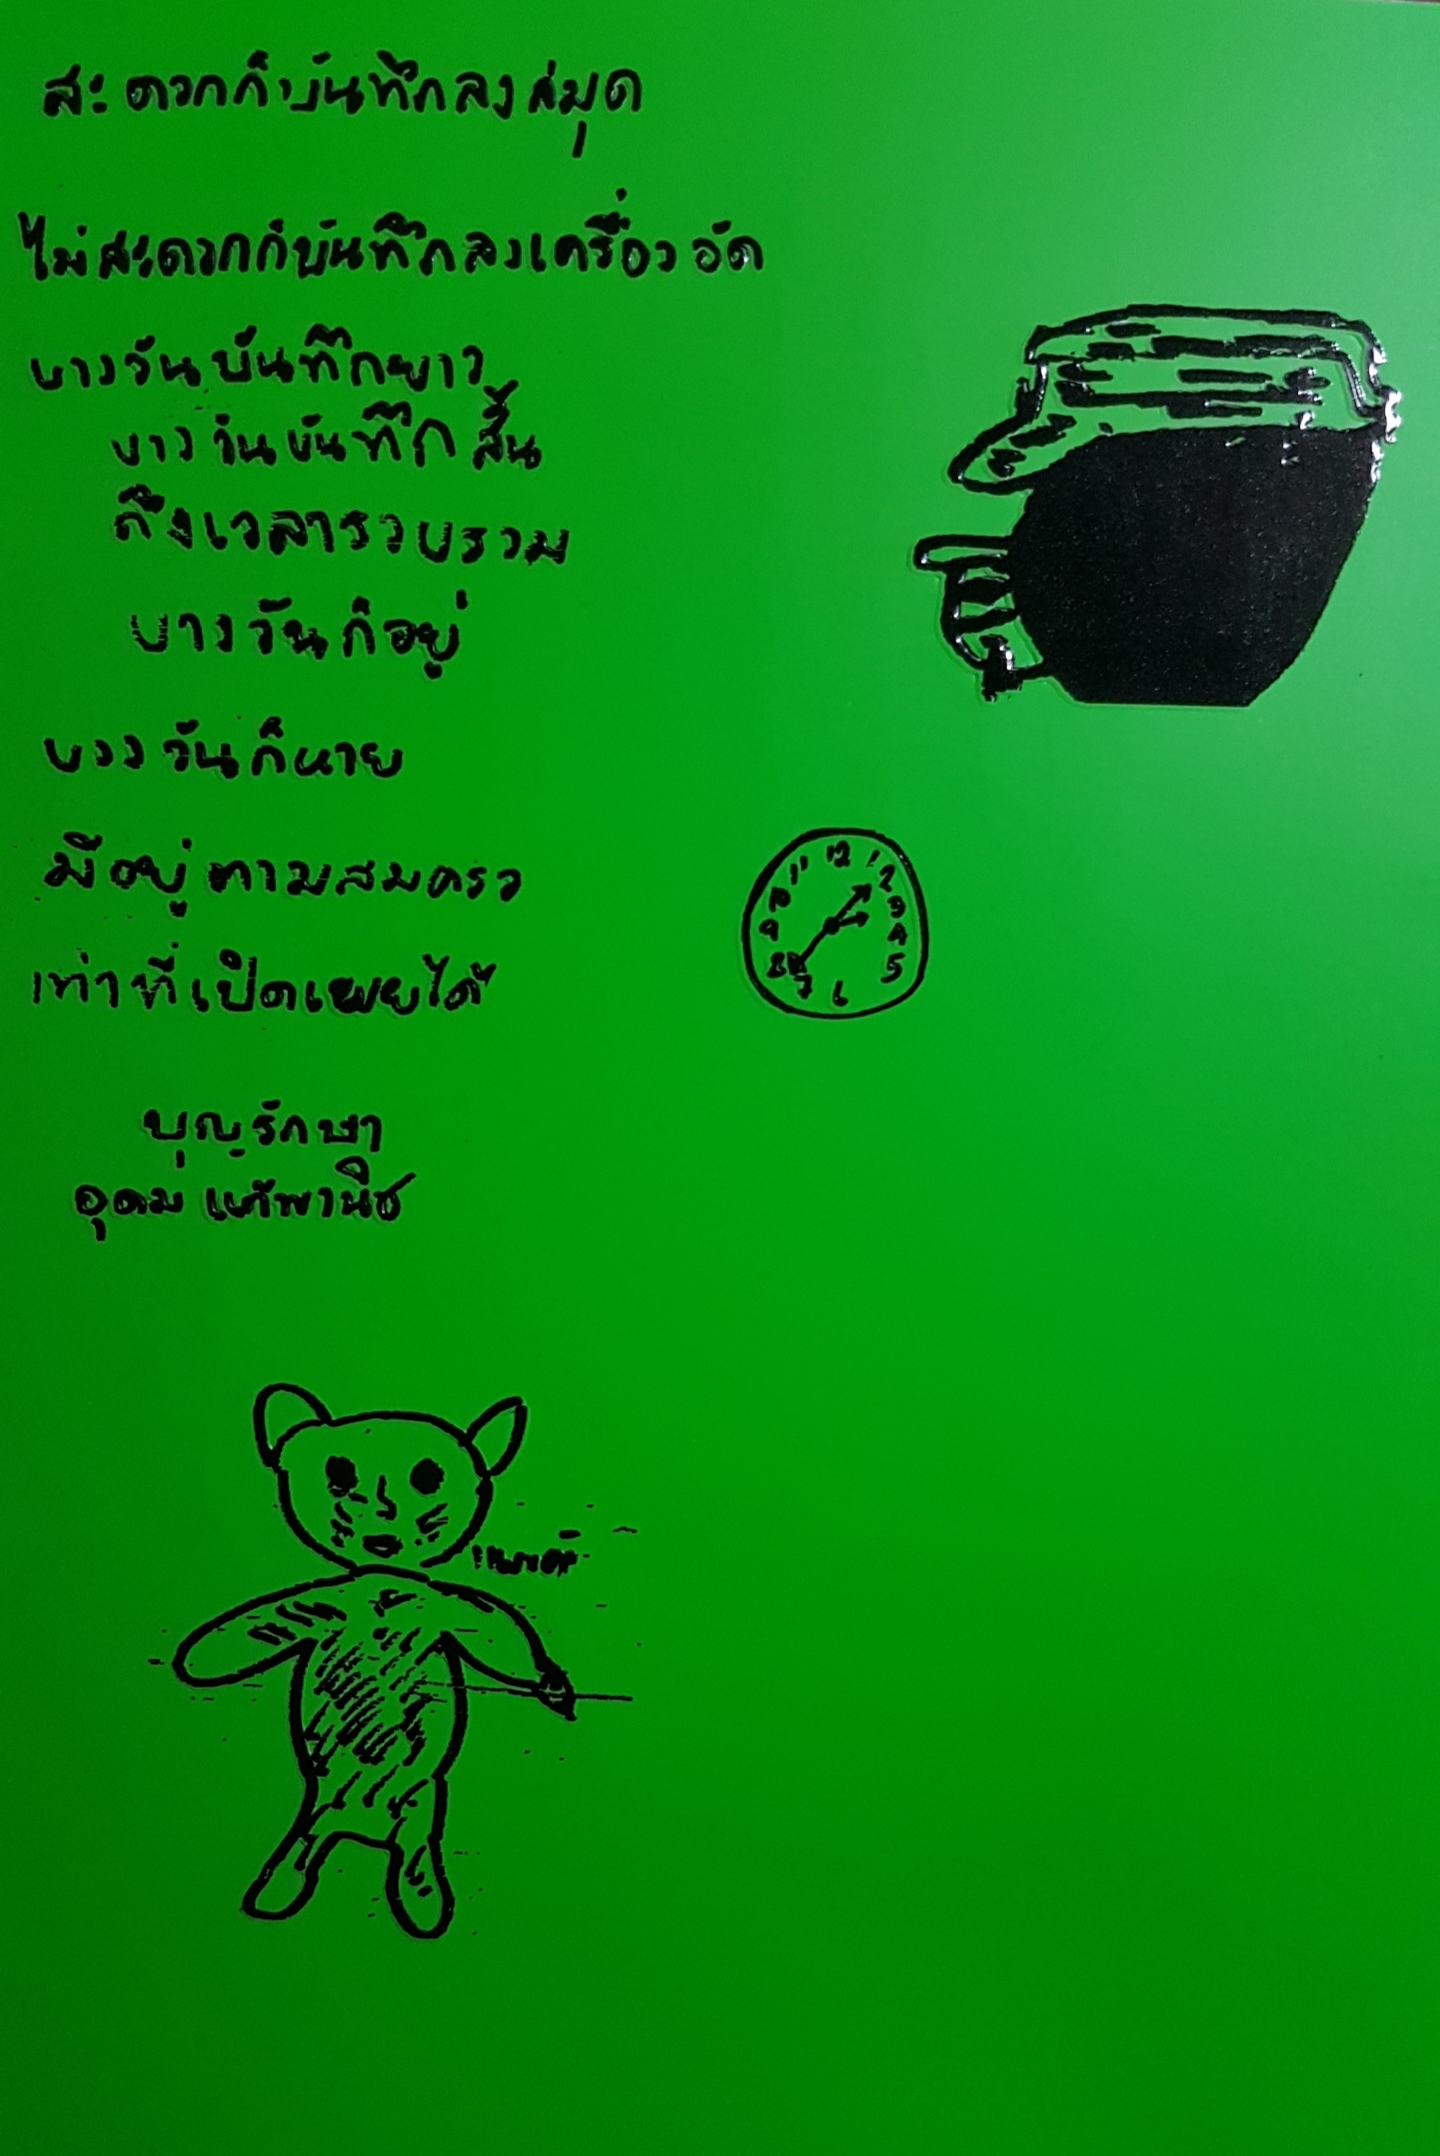 สะดวกก็บันทึกลงสมุด
ไม่สะดวกก็บันทึกลงเครื่องอัด
บางวันบันทึกยาว
บางวันบันทึกสั้น
ถึงเวลารวบรวม
บางวันก็อยู่
บางวันก็หาย
มีอยู่ตามสมควร
เท่าที่เปิดเผยได้
12 1 2 3 4 5 6 7 8 9 10 11
บุญรักษา
อุดม แต้พานิช